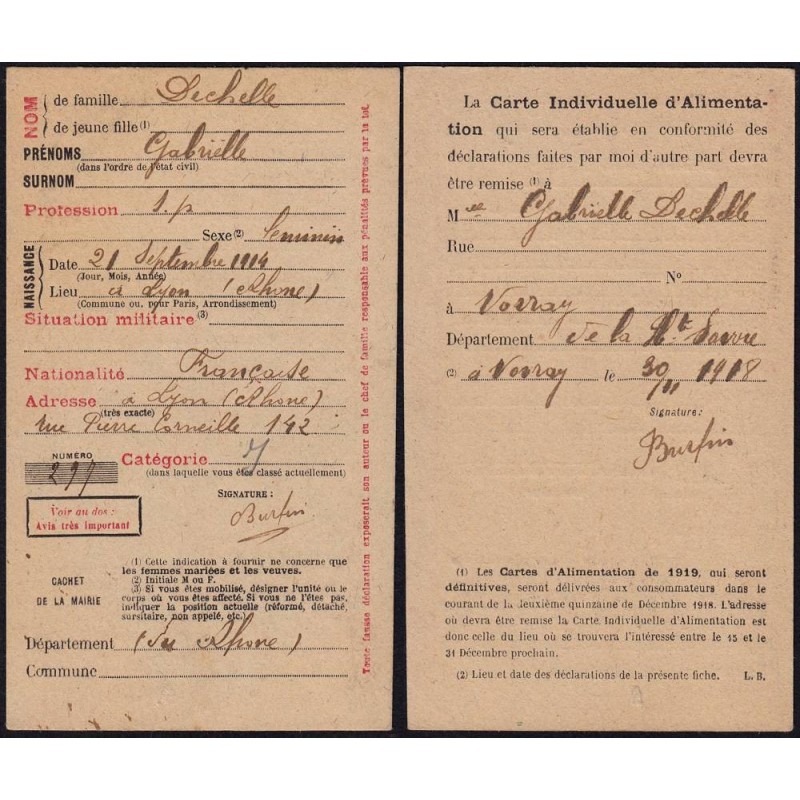 NOM
de famille Dechelle
de jeune fille(1)
PRÉNOMS Gabriëlle
(dans l'ordre de l'état civil)
SURNOM
Profession S.p
Sexe(2) Féminin
NAISSANCE
Date 21 Septembre 1914
(Jour, Mois, Année)
Lieu à Lyon (Rhone)
(Commune ou, pour Paris, Arrondissement)
Situation militaire(3)
Nationalité Française
Adresse à Lyon (Rhone)
(très exacte)
rue Pierre Corneille 142
NUMÉRO
297
Catégorie J
(dans laquelle vous êtes classé actuellement)
Voir au dos :
Avis très important
SIGNATURE :
Burfin
(1) Cette indication à fournir ne concerne que
les femmes mariées et les veuves.
(2) Initiale M ou F.
(3) Si vous êtes mobilisé, désigner l'unité ou le
corps où vous êtes affecté. Si vous ne l'êtes pas,
indiquer la position actuelle (réformé, détaché,
sursitaire, non appelé, etc.)
CACHET
DE LA MAIRIE
Département (du Rhone)
Commune
Toute fausse déclaration exposerait son auteur ou le chef de famille responsable aux pénalités prévues par la loi.
La Carte Individuelle d'Alimenta-
tion qui sera établie en conformité des
déclarations faites par moi d'autre part devra
être remise (1) à
M elle Gabrielle Dechelle
Rue
No
à Vorray
Département de la Hte Saone
(2) à Vorray le 30/11 1918
Signature :
Burfin
(1) Les Cartes d'Alimentation de 1919, qui seront
définitives, seront délivrées aux consommateurs dans le
courant de la deuxième quinzaine de Décembre 1918. L'adresse
où devra être remise la Carte Individuelle d'Alimentation est
donc celle du lieu où se trouvera l'intéressé entre le 15 et le
31 Décembre prochain.
(2) Lieu et date des déclarations de la présente fiche. L. B.